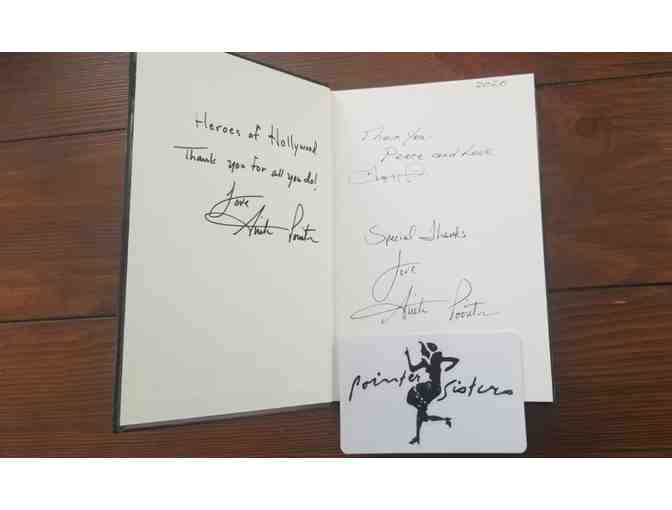 Heroes of Hollywood
Thank you for all you do!
Love
Anita Pointer
2020
Thank You
Peace and Love
Special Thanks
Love
Anita Pointer
pointer sisters